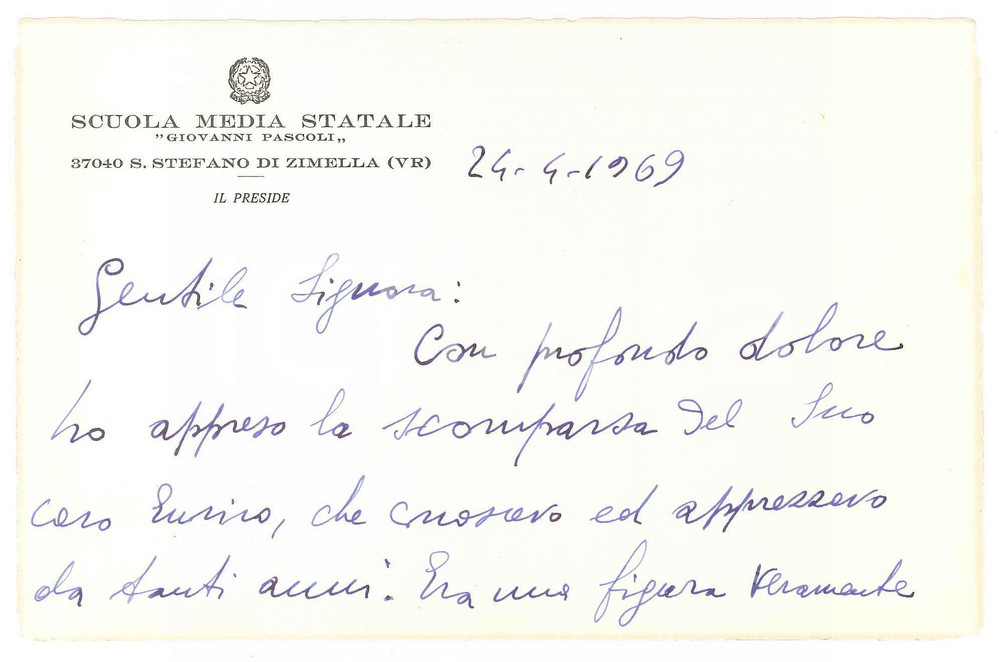 SCUOLA MEDIA STATALE
"GIOVANNI PASCOLI„
37040 S. STEFANO DI ZIMELLA (VR)
IL PRESIDE
24-4-1969
Gentile Signora:
Con profondo dolore
ho appreso la scomparsa del Suo
caro Enrico, che conoscevo ed apprezzavo
da tanti anni. Era una figura veramente